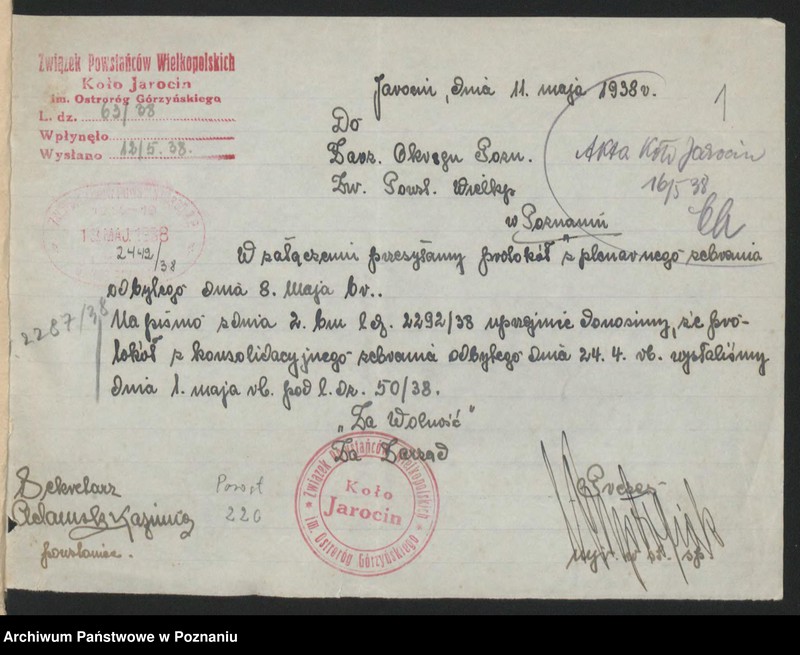 Związek Powstańców Wielkopolskich
Koło Jarocin
im. Ostroróg Górzyńskiego
L. dz. 63/38
Wpłynęło
Wysłano 12/5. 38.
Jarocin, dnia 11. maja 1938 r.
1
Do
Zarz. Okręgu Pozn.
Zw. Powst. Wielkp
w Poznaniu
Akta Koło Jarocin
16/5 38
MAJ. 1938
2442/38
W załączeniu przesyłamy protokół z plenarnego zebrania
odbytego dnia 8. Maja br..
2287/38
Na pismo z dnia 2. bm l.dz. 2292/38 uprzejmie donosimy, że pro-
tokół z konsolidacyjnego zebrania odbytego dnia 24. 4. rb. wysłaliśmy
dnia 1. maja rb. pod l. dz. 50/38.
„Za Wolność"
Za Zarząd
Sekretarz
Adamski Kazimierz
powstaniec.
Powst
220
Związek Powstańców Wielkopolskich
Koło
Jarocin
im. Ostroróg Górzyńskiego
Prezes
Archiwum Państwowe w Poznaniu